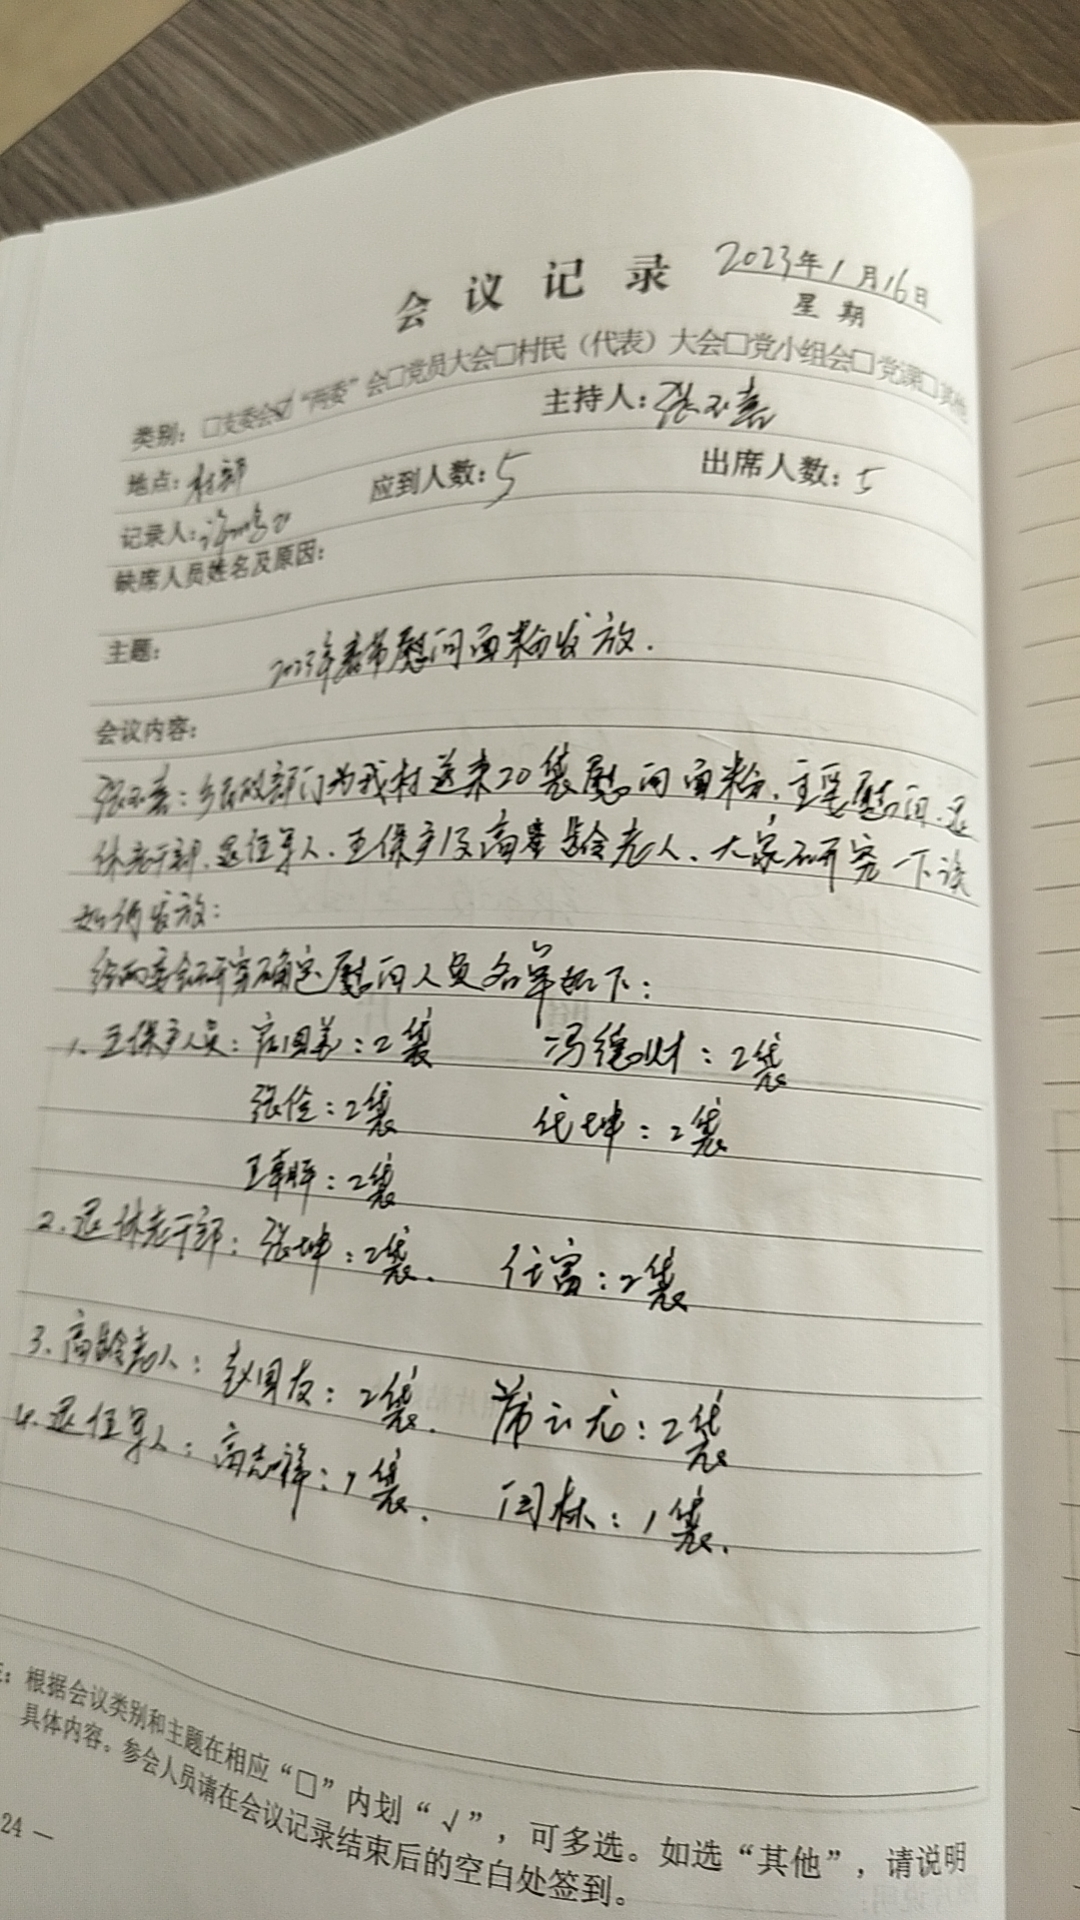 会议记录 2023年1月16日
星期
类别：□支委会☑“两委”会□党员大会□村民（代表）大会□党小组会□党课□其他
地点：村部 主持人：张玉
记录人： 应到人数：5 出席人数：5
缺席人员姓名及原因：
主题： 2023年春节慰问面粉发放.
会议内容：
张玉：乡民政部门为我村送来20袋慰问面粉，主要慰问退
休老干部、退伍军人、五保户及高龄老人、大家研究一下该
如何发放：
经两委会研究确定慰问人员名单如下：
1. 五保户人员：国：2袋 冯德财：2袋
张俭：2袋 坤：2袋
王：2袋
2. 退休老干部：张坤：2袋. 任富：2袋
3. 高龄老人：赵国友：2袋. 席云龙：2袋
4. 退伍军人：高志祥：1袋. 闫林：1袋.
：根据会议类别和主题在相应“□”内划“√”，可多选。如选“其他”，请说明
具体内容。参会人员请在会议记录结束后的空白处签到。
24 —